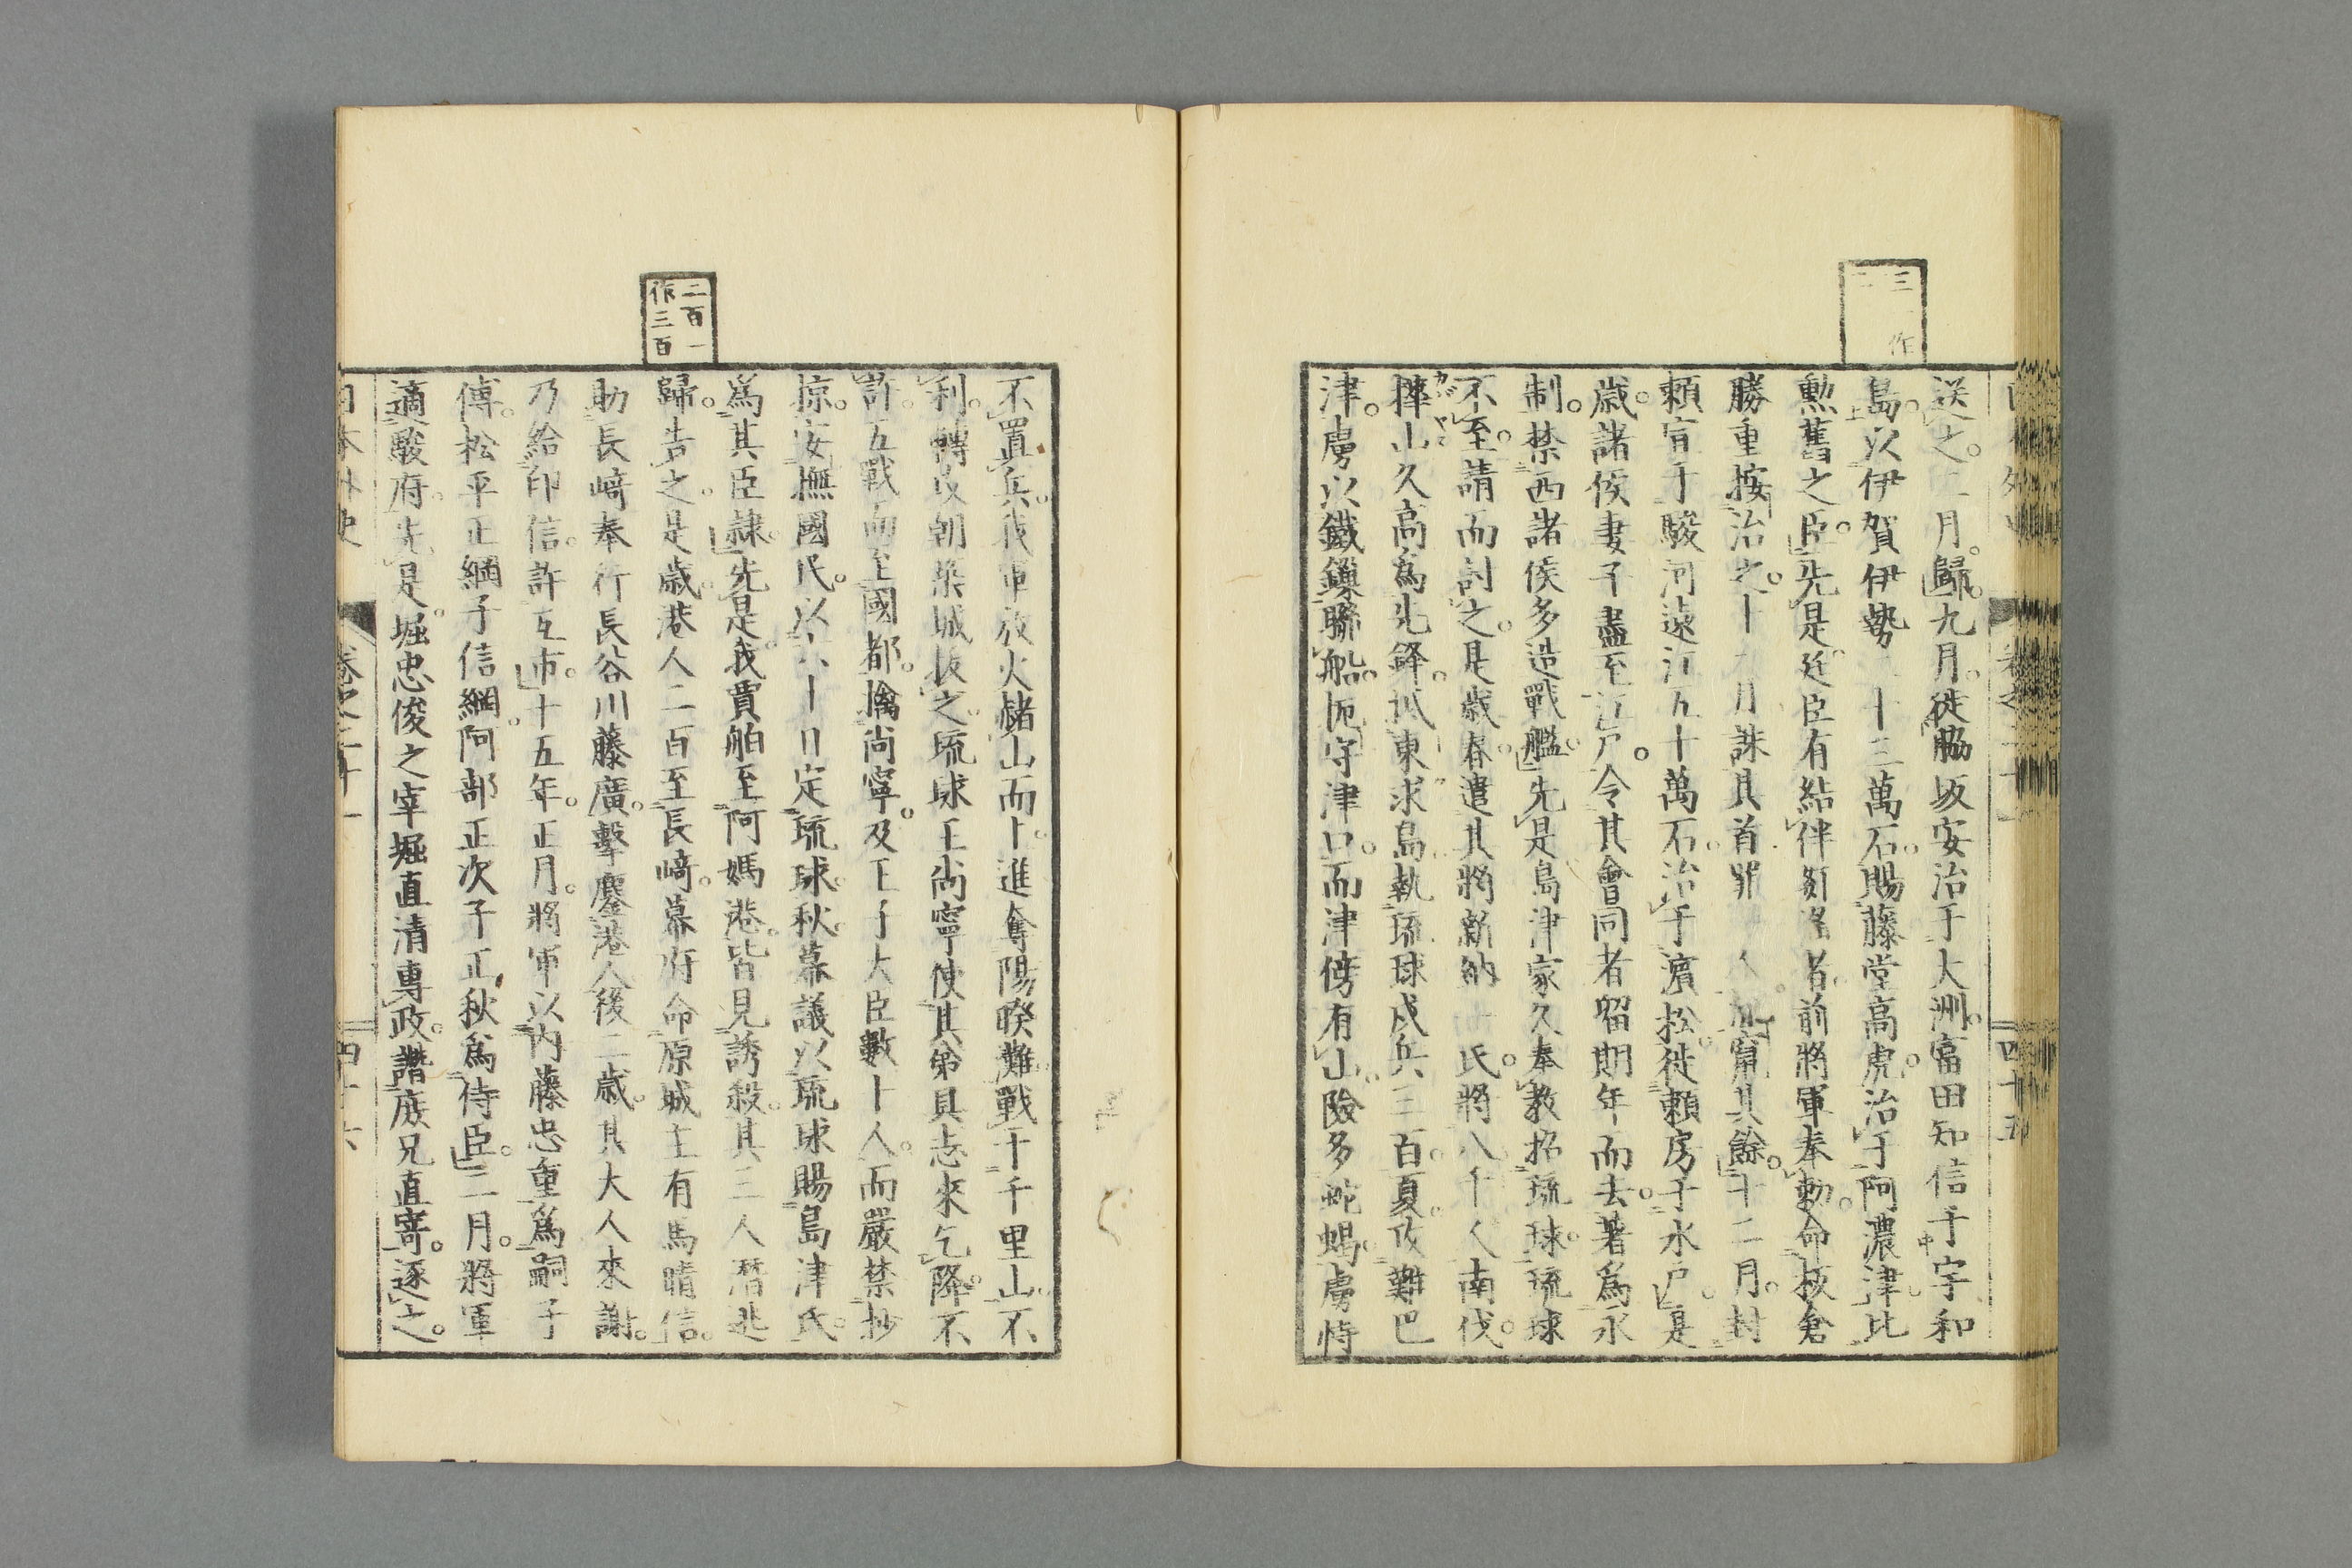 三 作
二
送之。二月。歸。九月。徙脇坂安治于大洲。富田知信于宇和
島。以伊賀伊勢二十三萬石。賜藤堂高虎。治于阿濃津。比
勲舊之臣。先是。廷臣有結伴宿者。前將軍奉勅。命板倉
勝重按治之。十月誅其首罪 人。竄其餘。十二月。封
頼宣于駿河遠江五十萬石。治于濱松。徙頼房于水戸。是
歳。諸侯妻子盡至江戸。令其會同者。留期年而去。著爲永
制。禁西諸侯多造戰艦。先是島津家久奉教招琉球。琉球
不至。請而討之。是歳春。遣其將新納 氏。將八千人南伐。
樺山久高爲先鋒。抵東求島。執琉球戍兵三百。夏。攻難巴
津。虜以鐵鎖聯船。扼守津口。而津傍有山。險多蛇蝎。虜恃
四十五
二百一
作三百
不置兵。我軍放火赭山而上。進奪陽睽灘。戰于千里山。不
利。轉攻朝築城。拔之。琉球王尚寧使其弟具志來乞降。不
許。五戰而至國都。擒尚寧。及王子大臣數十人。而嚴禁抄
掠。安撫國民。以六十日定琉球。秋。幕議以琉球賜島津氏。
爲其臣隷。先是。我賈舶至阿媽港。皆見誘殺。其三人潛逃
歸。告之。是歳。港人二百至長﨑。幕府命原城主有馬晴信。
助長﨑奉行長谷川藤廣。擊鏖港人。後二歳。其大人來謝。
乃給印信。許互市。十五年。正月。將軍以内藤忠重爲嗣子
傅。松平正綱子信綱。阿部正次子正秋爲侍臣。二月。將軍
適駿府。先是。堀忠俊之宰堀直清專政。譖庶兄直寄。逐之。
日本外史
卷之二十一
四十六